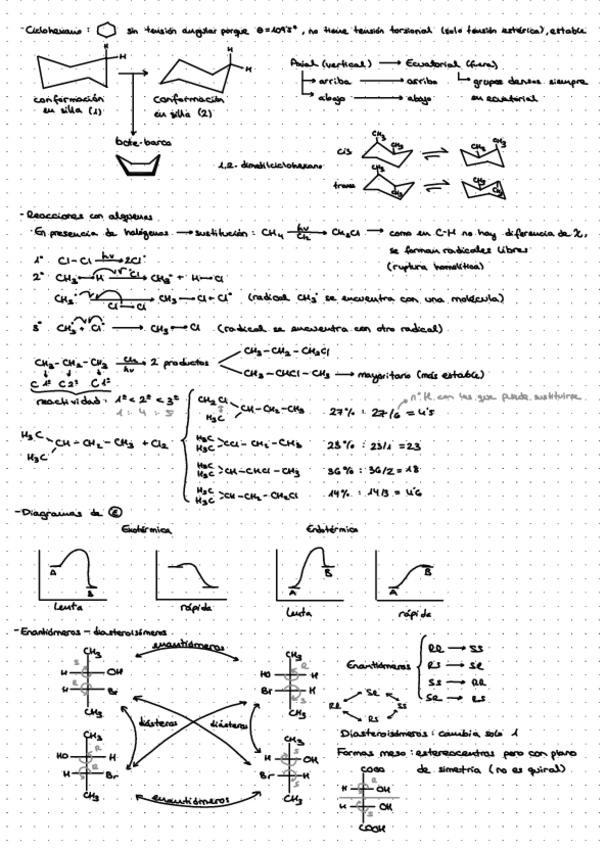 - Ciclohexano: sin tensión angular porque θ=109'5°, no tiene tensión torsional (solo tensión estérica), estable
H
H
H
H
conformación en silla (1)
conformación en silla (2)
bote-barco
Axial (vertical) → Ecuatorial (fuera)
arriba → arriba
abajo → abajo
grupos densos siempre en ecuatorial
1,2-dimetilciclohexano
cis CH₃ CH₃ ⇌ CH₃
trans CH₃ CH₃ ⇌ CH₃
- Reacciones con alquenos
· En presencia de halógenos → sustitución: CH₄ hν Cl₂ → CH₃Cl → como en C-H no hay diferencia de χ,
se forman radicales libres
(ruptura homolítica)
1° Cl-Cl hν → 2Cl°
2° CH₃-H °Cl → CH₃° + H-Cl
CH₃° Cl-Cl → CH₃-Cl + Cl° (radical CH₃° se encuentra con una molécula)
3° CH₃° + Cl° → CH₃-Cl (radical se encuentra con otro radical)
CH₃-CH₂-CH₃ Cl₂ hν → 2 productos
CH₃-CH₂-CH₂Cl
CH₃-CHCl-CH₃ → mayoritario (más estable)
C 1° C 2° C 1°
reactividad: 1° < 2° < 3°
1 : 4 : 5
nº H con los que puede sustituirse
H₃C H₃C >CH-CH₂-CH₃ + Cl₂
CH₂Cl H₃C >CH-CH₂-CH₃ 27% : 27/6 = 4'5
H₃C H₃C >CCl-CH₂-CH₃ 23% : 23/1 = 23
H₃C H₃C >CH-CHCl-CH₃ 36% : 36/2 = 18
H₃C H₃C >CH-CH₂-CH₂Cl 14% : 14/3 = 4'6
- Diagramas de E
Exotérmica
Endotérmica
A B
A B
A B
lenta
rápida
lenta
rápida
- Enantiómeros - diasteroisómeros
CH₃ H OH H Br CH₃
enantiómeros
CH₃ HO H Br H CH₃
diásteros
diásteros
CH₃ HO H H Br CH₃
enantiómeros
CH₃ H OH Br H CH₃
Enantiómeros
RR → SS
RS → SR
SS → RR
SR → RS
RR SR SS RS
Diasteroisómeros: cambia solo 1
Formas meso: estereocentros pero con plano
de simetría (no es quiral)
COOH
H R OH
H S OH
COOH